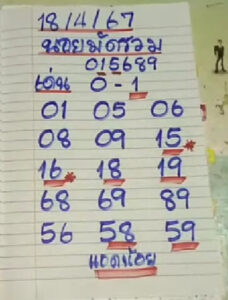 18/4/67
น้อยมัดรวม
015689
เด่น 0-1
01 05 06
08 09 15*
16* 18 19
68 69 89
56 58 59
แอดน้อย